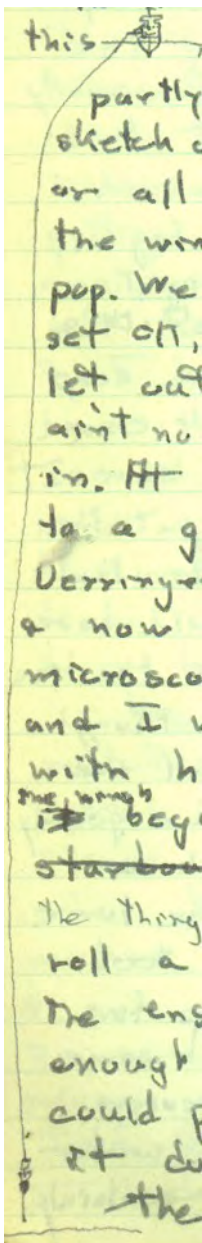 this
partly
sketch
or all
the win
pop. We
set on,
let out
ain't no
in.
to a g
Derringe
a now
microsco
and I w
with h
the winch
beg
starboa
The thing
roll a
The eng
enough
could p
it du
the